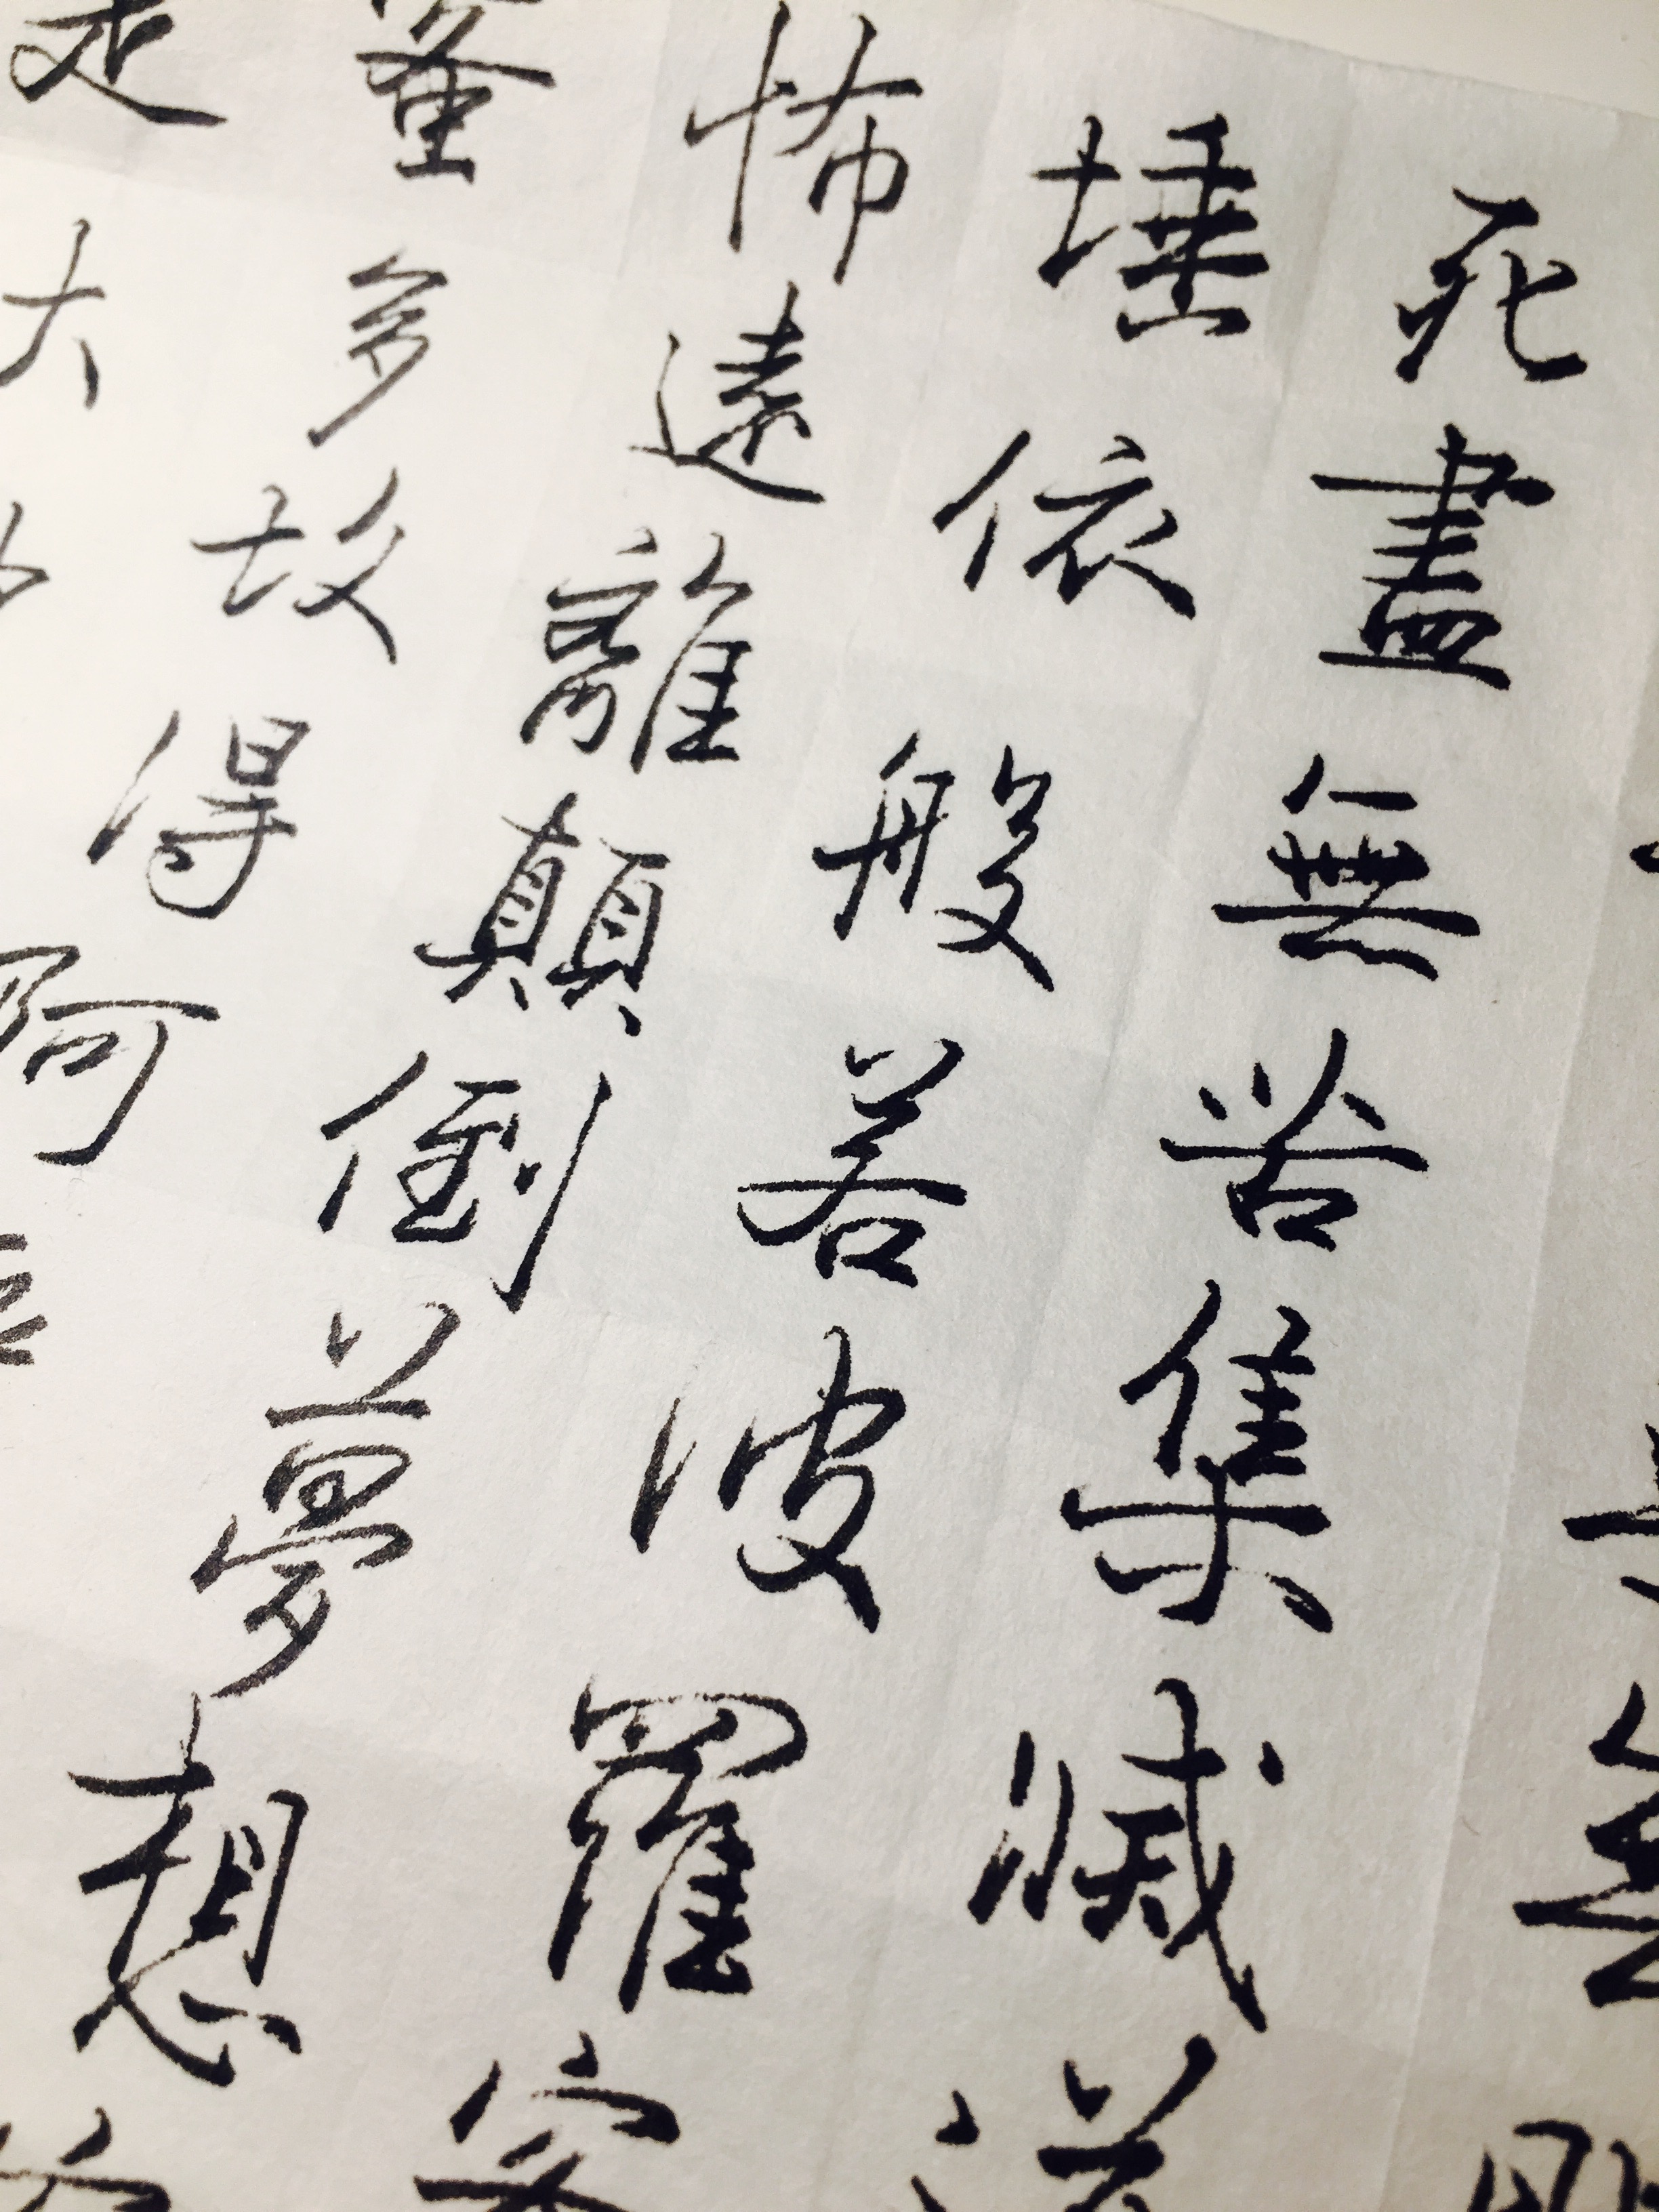 死盡無苦集滅道
埵依般若波羅蜜
怖遠離顛倒夢想
蜜多故得阿
是大